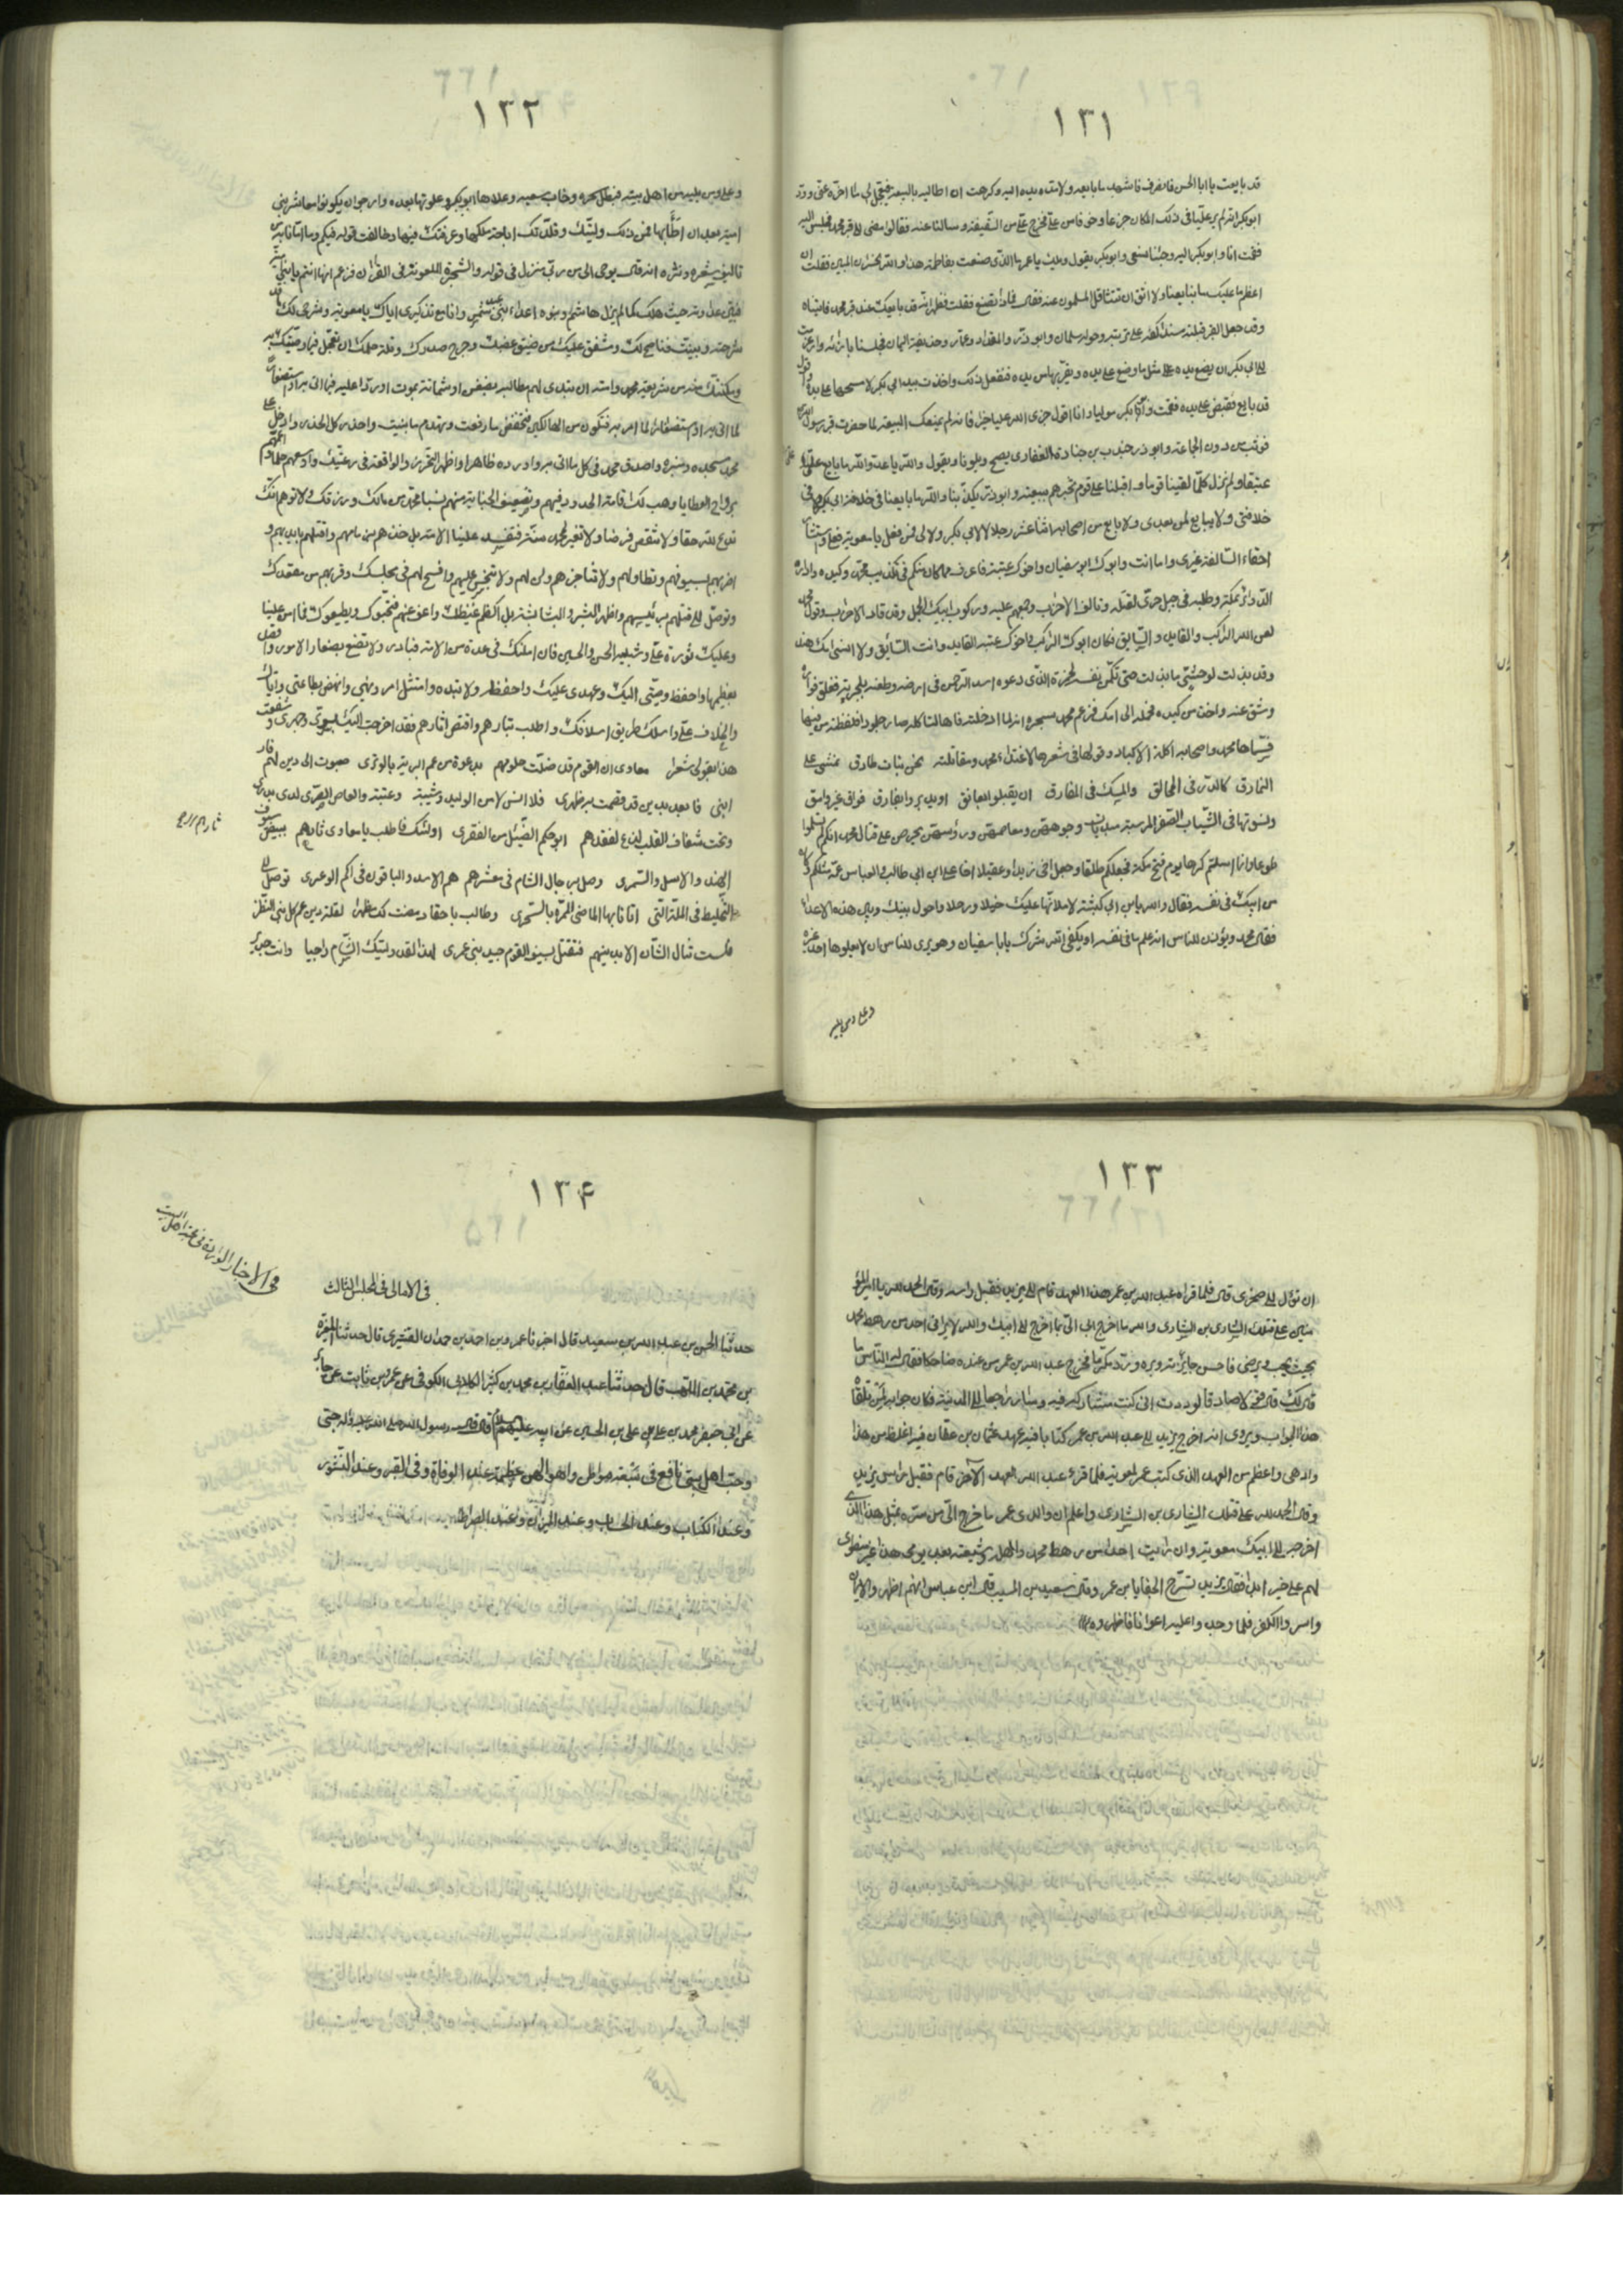 ١٣١
قد بايعت يا ابا الحسن فانصرف فاشهد ما بايعه ولا مد يده اليه وكرهت ان اطالبه بالبيعة فيعجل لى ما اخره عنى وود
ابو بكر انه لم ير عليا فى ذلك المكان جزعا وخوفا من على فخرج على من السقيفة وسالنا عنه فقالوا مضى الى قبر محمد فجلس اليه
فقمت انا وابو بكر اليه وجئنا نسعى وابو بكر يقول ويلك يا عمر ما الذى صنعت بفاطمة هذا والله الخسران المبين فقلت ان
اعظم ما عليك ما بايعنا ولا اثق ان تتثاقل المسلمون عنه فقال فماذا نصنع فقلت تظهر انه قد بايعك عند قبر محمد فاتيناه
وقد جعل القبر قبلته مسندا كفه على تربته وحوله سلمان وابو ذر والمقداد وعمار وحذيفة اليمان فجلسنا بازائه واوعزت
الى ابى بكر ان يضع يده على مثل ما وضع على يده ويقربها من يده ففعل ذلك واخذت بيد ابى بكر لامسحها على يده واقول
قد بايع فقبض على يده فقمت وابو بكر موليا وانا اقول جزى الله عليا خيرا فانه لم يمنعك البيعة لما حضرت قبر رسول الله
فوثب من دون الجماعة وابو ذر جندب بن جنادة الغفارى يصيح ويقول والله يا عدو الله ما بايع على
عتيقا ولم نزل كلما لقينا قوما واقبلنا على قوم نخبرهم ببيعته وابو ذر يكذبنا والله ما بايعنا فى خلافة ابى بكر ولا فى
خلافتى ولا يبايع لمن بعدى ولا بايع من اصحابه اثنا عشر رجلا لا لابى بكر ولا لى فمن فعل يا معوية فعلى واستثار
احقاده السالفة غيرى واما انت وابوك ابو سفيان واخوك عتبة فاعرف ما كان منكم فى تكذيب محمد وكيده وادارة
الدوائر بمكة وطلبه فى جبل حرى لقتله وتالف الاحزاب وجمعهم عليه وركوب ابيك الجمل وقد قاد الاحزاب وقول محمد
لعن الله الراكب والقايد والسايق فكان ابوك الراكب واخوك عتبة القايد وانت السائق ولا انسى امك هند
وقد بذلت لوحشى ما بذلت حتى تكمن نفسه لحمزة الذى دعوه اسد الرحمن فى ارضه وطعنه بالحربة ففلق فؤاده
وشق عنه واخذ من كبده فحمله الى امك فزعم محمد بسحره انه لما ادخلته فاها لتاكله صار جلمودا فلفظته من فيها
فسماها محمد واصحابه اكلة الاكباد وقولها فى شعرها لاعتداء محمد ومقاتلته نحن بنات طارق نمشى على
النمارق كالدر فى المخانق والمسك فى المفارق ان يقبلوا نعانق او يدبروا نفارق فراق غير وامق
ونسوتها فى الثياب الصفر المرسية مبديات وجوههن ومعاصمهن ورؤسهن يحرصن على قتال محمد انكم لم تسلموا
طوعا وانما اسلمتم كرها يوم فتح مكة فجعلكم طلقاء وجعل اخى زيدا وعقيلا اخا على ابن ابى طالب والعباس عمه مثلكم وكان
من ابيك فى نفسه فقال والله يا بن ابى كبشة لاملانها عليك خيلا ورجلا واحول بينك وبين هذه الاعداء
فقال محمد ويؤذن للناس انه علم ما فى نفسه او يكفى الله شرك يا با سفيان وهو يرى للناس ان لا يعلوها احد غيره
وعلى ومن يليه
١٣٢
وعلى ومن يليه من اهل بيته فبطل سحره وخاب سعيه وعلاها ابو بكر وعلوتها بعده وارجو ان يكونوا معاشر بنى
امية بعد ان اطنابها فمن ذلك وليتك وقلدتك اباحة ملكها وعرفتك فيها وخالفت قوله فيكم وما ابالى من
تاليف شعره ونثره انه قال يوحى الى من ربى منزل فى قوله والشجرة الملعونة فى القران فزعم انها انتم يا بنى امية
فبين عداوته حيث ملك كما لم يزل هاشم وبنوه اعداء بنى عبد شمس وانا مع تذكيرى اياك يا معوية وشرحى لك ما قد
شرحته وبينت فناصح لك ومشفق عليك من ضيق عطنك وحرج صدرك وقلة حلمك ان تعجل فيما وصيتك به
ومكنتك منه من شريعة محمد وامته ان تبدى لهم مطالبة بضغن او شماتة بموت او ردا عليه فيما اتى به او استصغارا
لما اتى به او استصغارا لما امر به فتكون من الهالكين فتخفض ما رفعت وتهدم ما بنيت واحذر كل الحذر وادخل على
محمد مسجده ومنبره واصدق محمدا فى كل ما اتى به واورده ظاهرا واظهر التحرز والواقعة فى رعيتك واوسعهم حلما واعمهم
بروائح العطايا وهب لك اقامة الحدود فيهم وتضعيف الجناية منهم لسبا محمد من مالك ورزقك ولا ترهم انك
تدع لله حقا ولا تنقض فرضا ولا تغير لمحمد سنة فتفسد علينا الامة بل خذهم من مامنهم واقتلهم بايديهم و
ابرهم بسيوفهم وتطاولهم ولا تناجزهم ولن لهم ولا تبخس عليهم وافسح لهم فى مجلسك وقربهم من مقعدك
وتوصل الى قتلهم برئيسهم واظهر البشر والبشاشة بل اكظم غيظك واعف عنهم فيحبوك ويطيعوك فما امن علينا
وعليك ثورة على وشبليه الحسن والحسين فان امكنك فى عدة من الامة فبادر ولا تقنع بصغار الامور واقصد
بعظيمها واحفظ وصيتى اليك وعهدى عليك واحفظه ولا تبده وامتثل امرى ونهيى وانهض بطاعتى واياك
والخلاف على واسلك طريق اسلافك واطلب بثارهم واقتص اثارهم فقد اخرجت اليك بسرى وجهرى وشفعت
هذا بقولى شعرا معاوى ان القوم قد ضلت حلومهم بدعوة من عم البرية بالوترى صبوت الى دين لهم فار
ابنى فابعد بدين قد قصمت به ظهرى فلا انس لا انس الوليد وشيبة وعتبة والعاص الصريع لدى بدرى
وتحت شغاف القلب لدغ لفقدهم ابو حكم الضئيل من الفقرى اولئك فاطلب يا معاوى ثارهم ببيض سيوف
ثارهم ١١ ح
الهند والاسل والسمرى وصل برجال الشام فى معشرهم هم الاسد والباقون فى اكم الوعرى توصل الى
التخليط فى الملة التى اتانا بها الماضى المموه بالسحرى وطالب باحقاد مضت لك مظهرا لعلة دين عم كل بنى النظر
فلست تنال الثار الا بدينهم فتقتل بسيف القوم جيد بنى عمرى لهذا لقد وليتك الشام راجيا وانت جدير
١٣٣
ان تؤل الى صخرى قال فلما قراه عبد الله بن عمر هذا العهد قام الى يزيد فقبل راسه وقال الحمد لله يا امير المؤ
منين على قتلك الشارى بن الشارى والله ما اخرج ابى الى بما اخرج الى ابيك والله لا يرانى احد من رهط محمد
بحيث يحب ويرضى فاحسن جائزته وبره ورده مكرما فخرج عبد الله بن عمر من عنده ضاحكا فقال له الناس ما
قال لك قال قولا صادقا لوددت انى كنت مشاركه فيه وسار راجعا الى المدينة فكان جوابه لمن تلقاه
هذا الجواب ويروى انه اخرج يزيد الى عبد الله بن عمر كتابا فيه عهد عثمان بن عفان فيه اغلظ من هذا
وادهى واعظم من العهد الذى كتبه عمر لمعوية فلما قرء عبد الله العهد الآخر قام فقبل راس يزيد
وقال الحمد لله على قتلك الشارى بن الشارى واعلم ان والدى عمر ما اخرج الى من سره بمثل هذا الذى
اخرجه الى ابيك معوية وان رايت احدا من رهط محمد واهله وشيعته بعد يومى هذا غير منطوى
لهم على خير ابدا فقال يزيد تشرح الخفايا بن عمر وقال سعيد بن المسيب قال ابن عباس انهم اظهروا الايمان
واسروا الكفر فلما وجدوا عليه اعوانا اظهروه ١١
١٣۴
فى الاخبار الواردة فى محبة اهل البيت
فى الامالى فى المجلس الثالث
حدثنا الحسن بن عبد الله بن سعيد قال اخبرنا عمرو بن احمد بن حمدان القشيرى قال حدثنا المغيرة
بن محمد بن المهلب قال حدثنا عبد الغفار بن محمد بن كثير الكلابى الكوفى عن عمرو بن ثابت عن جابر
عن ابى جعفر محمد بن على عن على بن الحسين عن ابيه عليهم السلام قال قال رسول الله صلى الله عليه وآله حبى
وحب اهل بيتى نافع فى سبعة مواطن واهوالهن عظيمة عند الوفاة وفى القبر وعند النشور
وعند الكتاب وعند الحساب وعند الميزان وعند الصراط